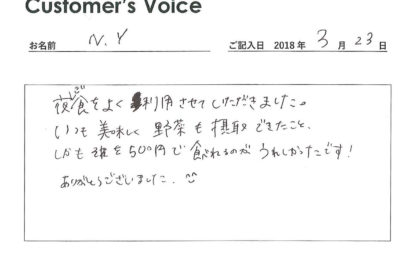 Customer's Voice
お名前 N.Y ご記入日 2018年 3月 23日
夜食をよく利用させていただきました。
いつも美味しく野菜も摂取できたこと、
しかも 500円で飲れるのがうれしかったです!
ありがとうございました.